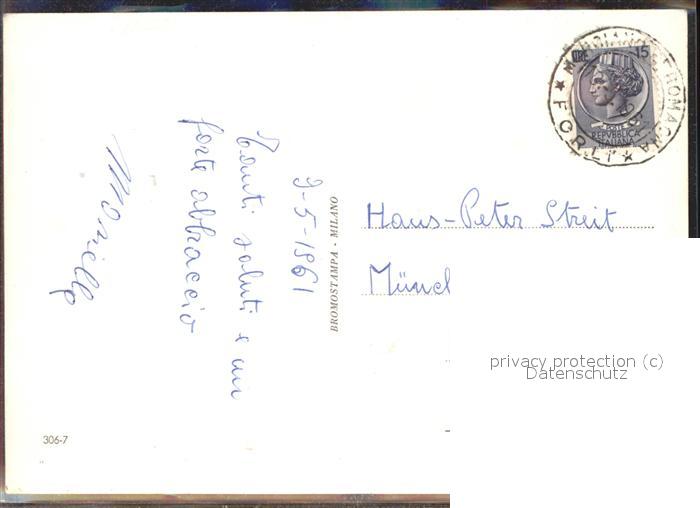 9-5-1961
Tanti saluti e un
forte abbraccio
BROMOSTAMPA - MILANO
306-7
LIRE 15
POSTE
REPVBBLICA
ITALIANA
FORLI
Hans-Peter Streit
Münch
privacy protection (c)
Datenschutz